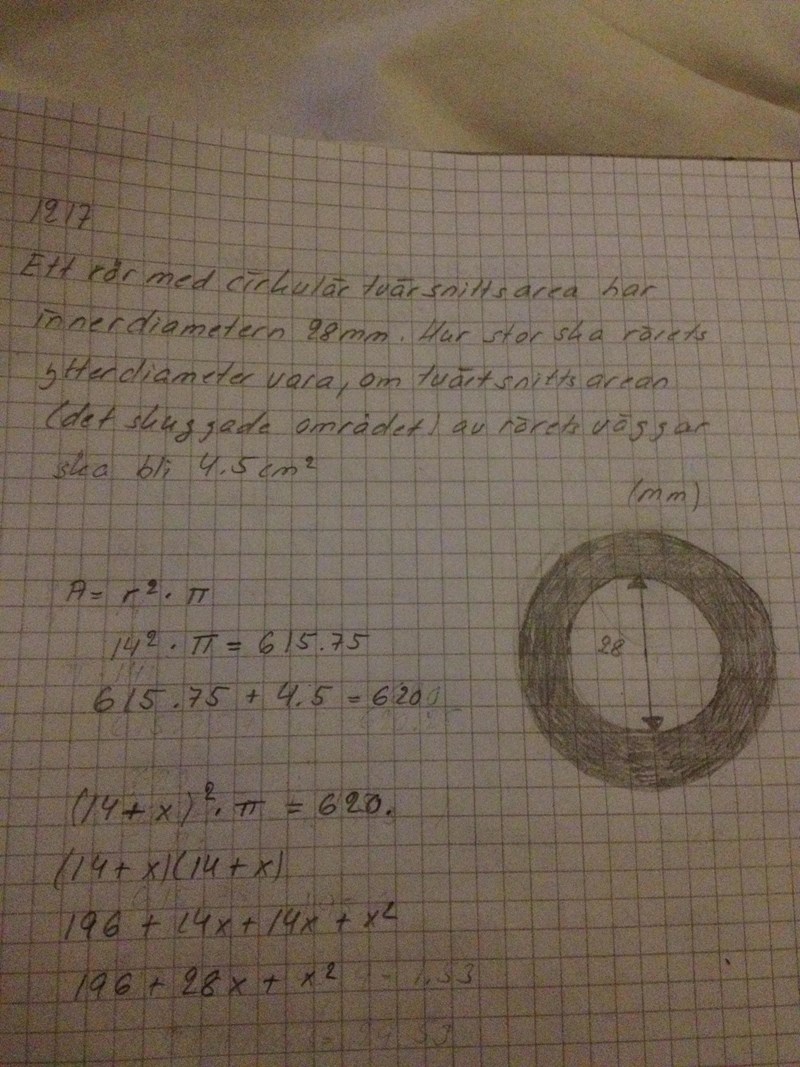 1217
Ett rör med cirkulär tvärsnittsarea har
innerdiametern 28mm. Hur stor ska rörets
ytterdiameter vara, om tvärtsnittsarean
(det skuggade området) av rörets väggar
ska bli 4.5 cm²
(mm)
28
A = r² · π
14² · π = 615.75
615.75 + 4.5 = 620
(14 + x)² · π = 620.
(14 + x)(14 + x)
196 + 14x + 14x + x²
196 + 28x + x²